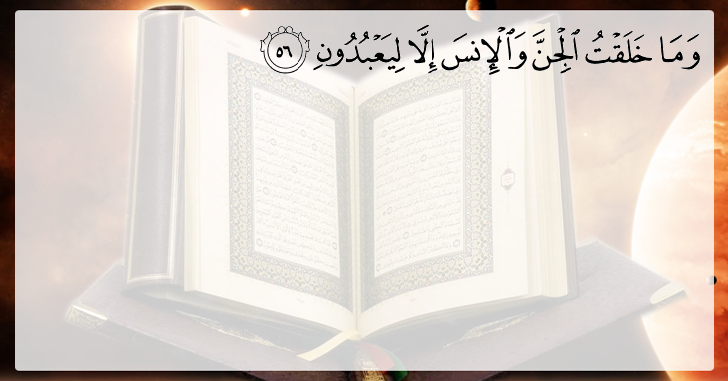 وَمَا خَلَقْتُ ٱلْجِنَّ وَٱلْإِنسَ إِلَّا لِيَعْبُدُونِ ٥٦